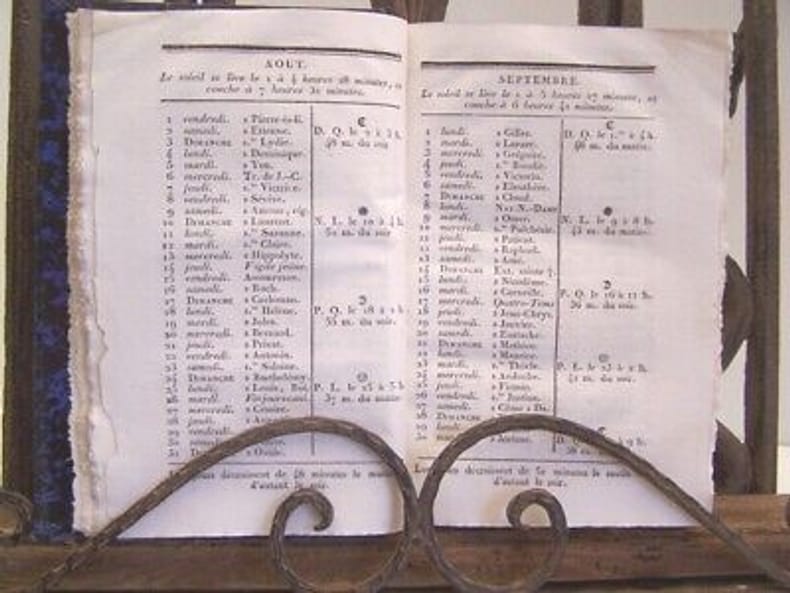 AOUT.
Le soleil se lève le 1 à 4 heures 28 minutes, et
couche à 7 heures 32 minutes.
1 vendredi. s Pierre-ès-li.
2 samedi. s Etienne.
3 DIMANCHE s.te Lydie.
4 lundi. s Dominique.
5 mardi. s Yon.
6 mercredi. Tr. de J.-C.
7 jeudi. s.te Victrice.
8 vendredi. s Sévère.
9 samedi.
10 DIMANCHE s Laurent.
11 lundi. s.te Suzanne.
12 mardi. s.te Claire.
13 mercredi s Hippolyte.
14 jeudi. Vigile jeûne.
15 vendredi. Assomption.
16 samedi. s Roch.
17 DIMANCHE
18 lundi. s.te Hélène.
19 mardi. s Jules.
20 mercredi s Bernard.
21 jeudi. s Privat.
22 vendredi. s Antonin.
23 samedi. s.te Sidoine.
24 DIMANCHE s Barthélemy.
25 lundi. s Louis, Roi.
26 mardi. Fin jours can.
27 mercredi. s Césaire.
28 jeudi.
29 vendredi.
30 samedi
31 s Ovide.
D. Q. le
du soir
N. L. le 10 à
du soir
P. Q. le 18 à
du soir.
P. L. le 25 à 5 h.
37 m. du matin
jours décroissent de 48 minutes le matin
d'autant le soir.
SEPTEMBRE.
Le soleil se lève le 1 à 5 heures 17 minutes, et
couche à 6 heures 42 minutes.
1 lundi. s Gilles.
2 mardi. s Lazare.
3 mercredi. s Grégoire.
4 jeudi. s.te Rosalie.
5 vendredi. s Victorin.
6 samedi. s Eleuthère.
7 DIMANCHE s Cloud.
8 lundi. Nat. N.-Dame
9 mardi. s Omer.
10 mercredi. s.te Pulchérie.
11 jeudi. s Patient.
12 vendredi. s Raphael.
13 samedi. s Amé.
14 DIMANCHE Ext. sainte †.
15 lundi. s Nicodème.
16 mardi. s Corneille.
17 mercredi. Quatre-Tems
18 jeudi. s Jean-Chrys.
19 vendredi. s Janvier.
20 samedi. s Eustache.
21 DIMANCHE s Mathieu.
22 lundi. s Maurice.
23 mardi. s.te Thècle.
24 mercredi. s Andoche.
25 jeudi. s Firmin.
26 vendredi. s.te Justine.
27 samedi. s Côme s Da.
28 DIMANCHE
29 lundi
30 s Jérôme.
D. Q. le 1.er à
du matin.
N. L. le 9 à 8 h.
du matin.
P. Q. le 16 à 11 h.
36 m. du soir.
P. L. le 23 à
du soir.
à 9 h.
jours décroissent de 52 minutes le matin
d'autant le soir.